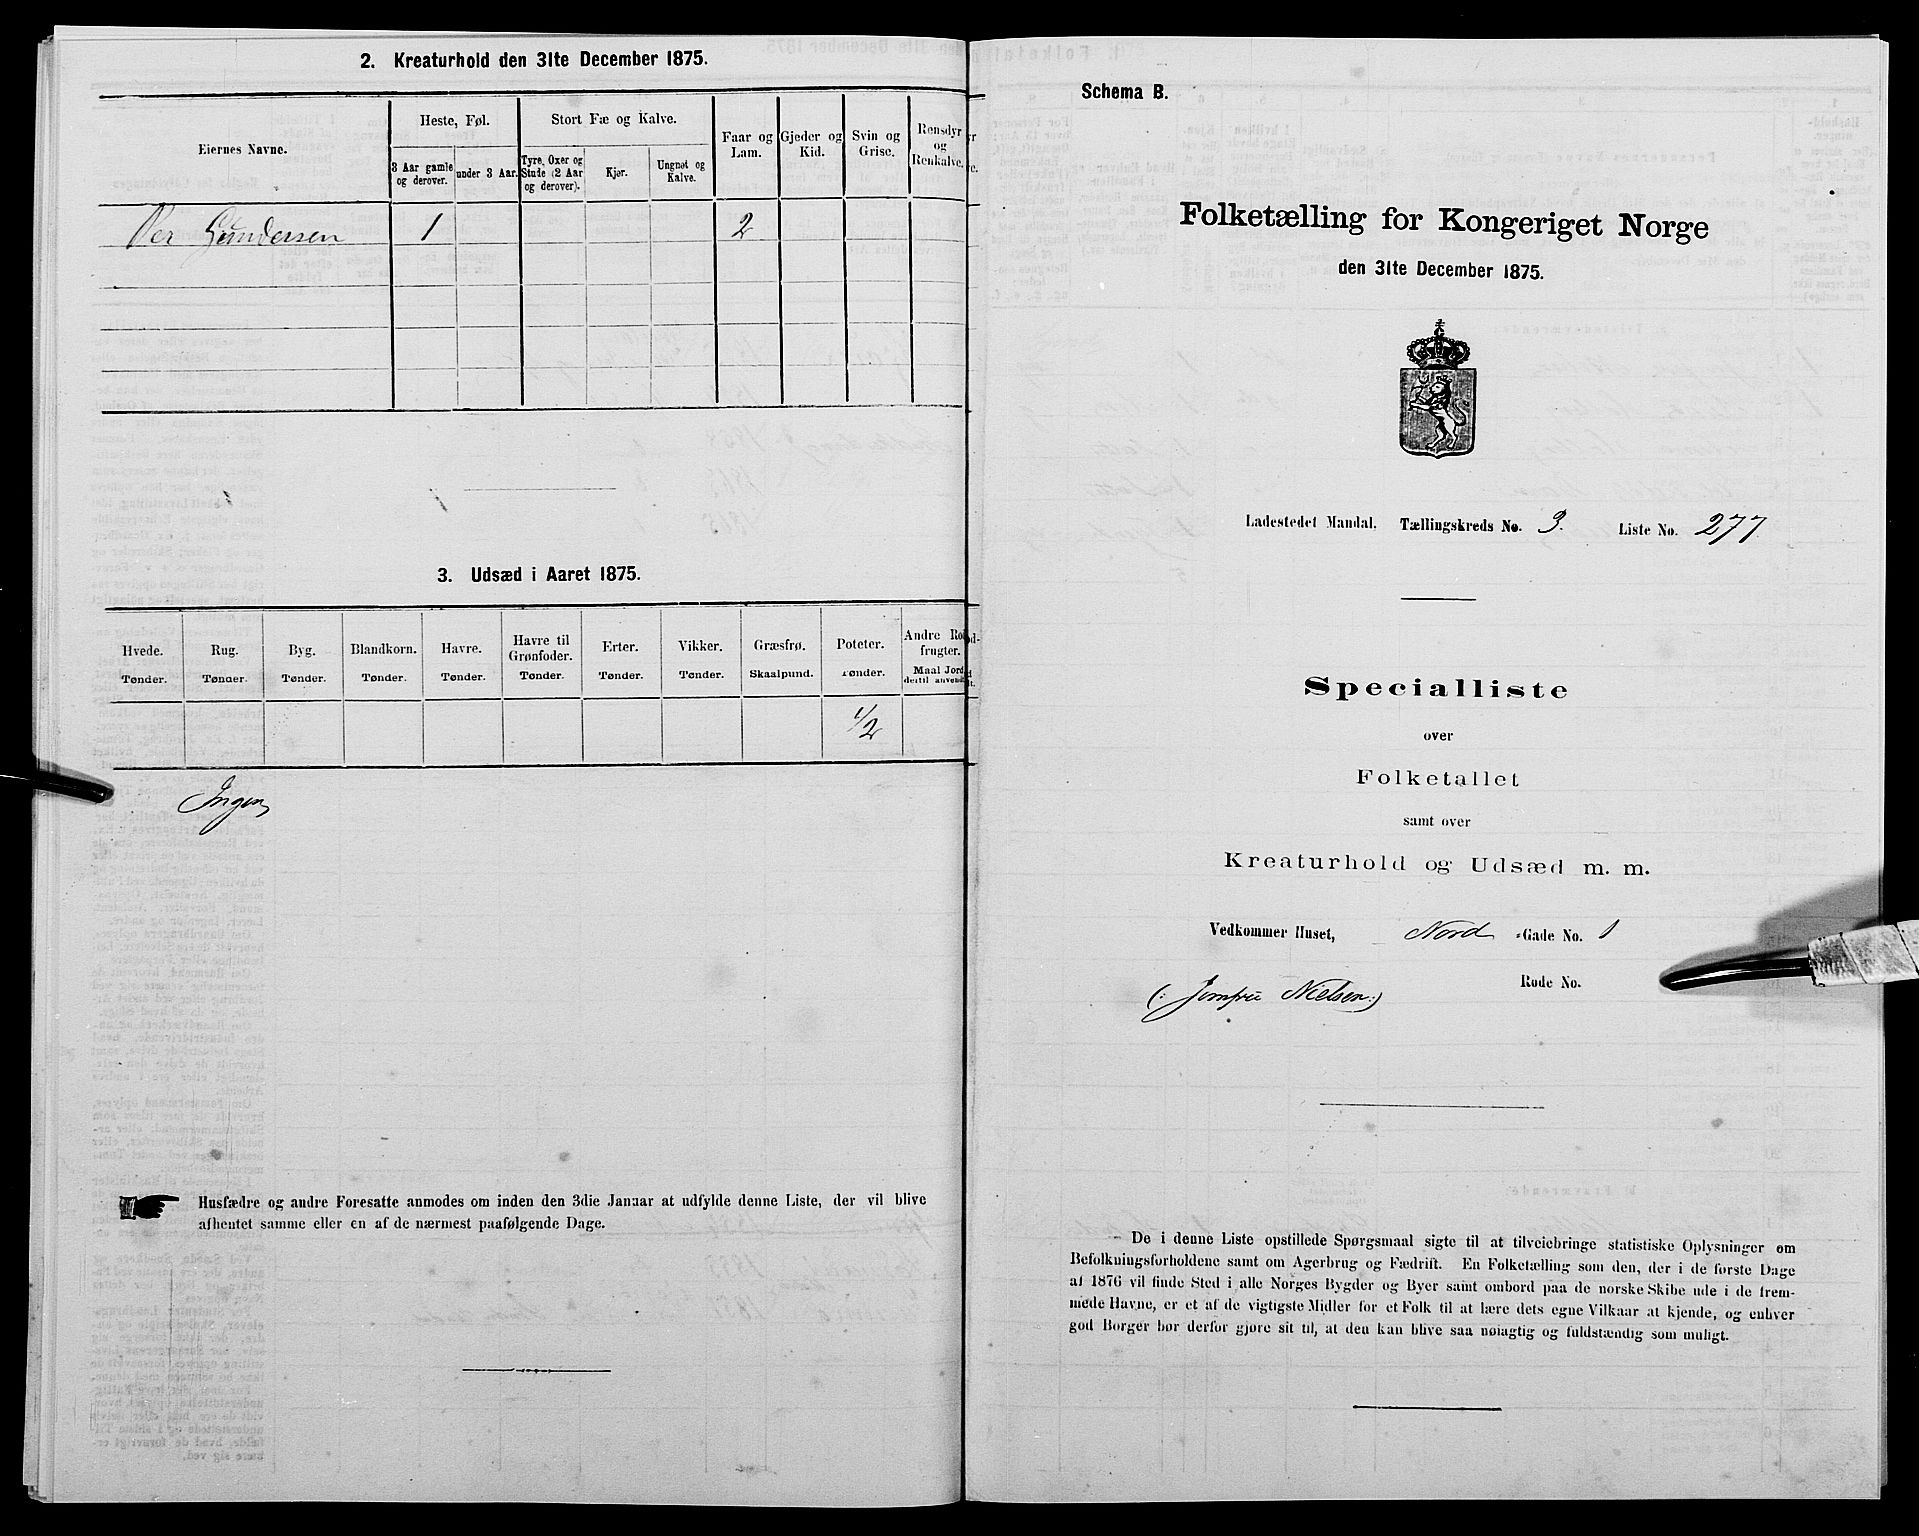 2. Kreaturhold den 31te December 1875.
Eiernes Navne.
Heste, Føl.
Stort Fæ og Kalve.
Faar og Lam.
Gjeder og Kid.
Svin og Grise.
Rensdyr og Renkalve.
3 Aar gamle og derover.
under 3 Aar.
Tyre, Oxer og Stude (2 Aar og derover).
Kjør.
Ungnøt og Kalve.
Per Gundersen 1 2
3. Udsæd i Aaret 1875.
Hvede. Rug. Byg. Blandkorn. Havre. Havre til Grønfoder. Erter. Vikker. Græsfrø. Poteter. Andre Rodfrugter.
Tønder. Tønder. Tønder. Tønder. Tønder. Tønder. Tønder. Tønder. Skaalpund. Tønder. Maal Jord dertil anvendt.
1/2
Ingen
Husfædre og andre Foresatte anmodes om inden den 3die Januar at udfylde denne Liste, der vil blive
afhentet samme eller en af de nærmest paafølgende Dage.
Schema B.
Folketælling for Kongeriget Norge
den 31te December 1875.
Ladestedet Mandal. Tællingskreds No. 3. Liste No. 277
Specialliste
over
Folketallet
samt over
Kreaturhold og Udsæd m. m.
Vedkommer Huset, Nord =Gade No. 1
Rode No.
(: Jomfru Nielsen :)
De i denne Liste opstillede Spørgsmaal sigte til at tilveiebringe statistiske Oplysninger om
Befolkningsforholdene samt om Agerbrug og Fædrift. En Folketælling som den, der i de første Dage
af 1876 vil finde Sted i alle Norges Bygder og Byer samt ombord paa de norske Skibe ude i de frem-
mede Havne, er et af de vigtigste Midler for et Folk til at lære dets egne Vilkaar at kjende, og enhver
god Borger bør derfor gjøre sit til, at den kan blive saa nøiagtig og fuldstændig som muligt.